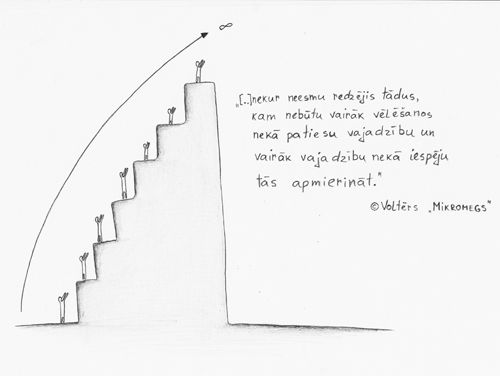 ∞
„[..]nekur neesmu redzējis tādus,
kam nebūtu vairāk vēlēšanos
nekā patiesu vajadzību un
vairāk vajadzību nekā iespēju
tās apmierināt."
© Voltērs „MIKROMEGS"